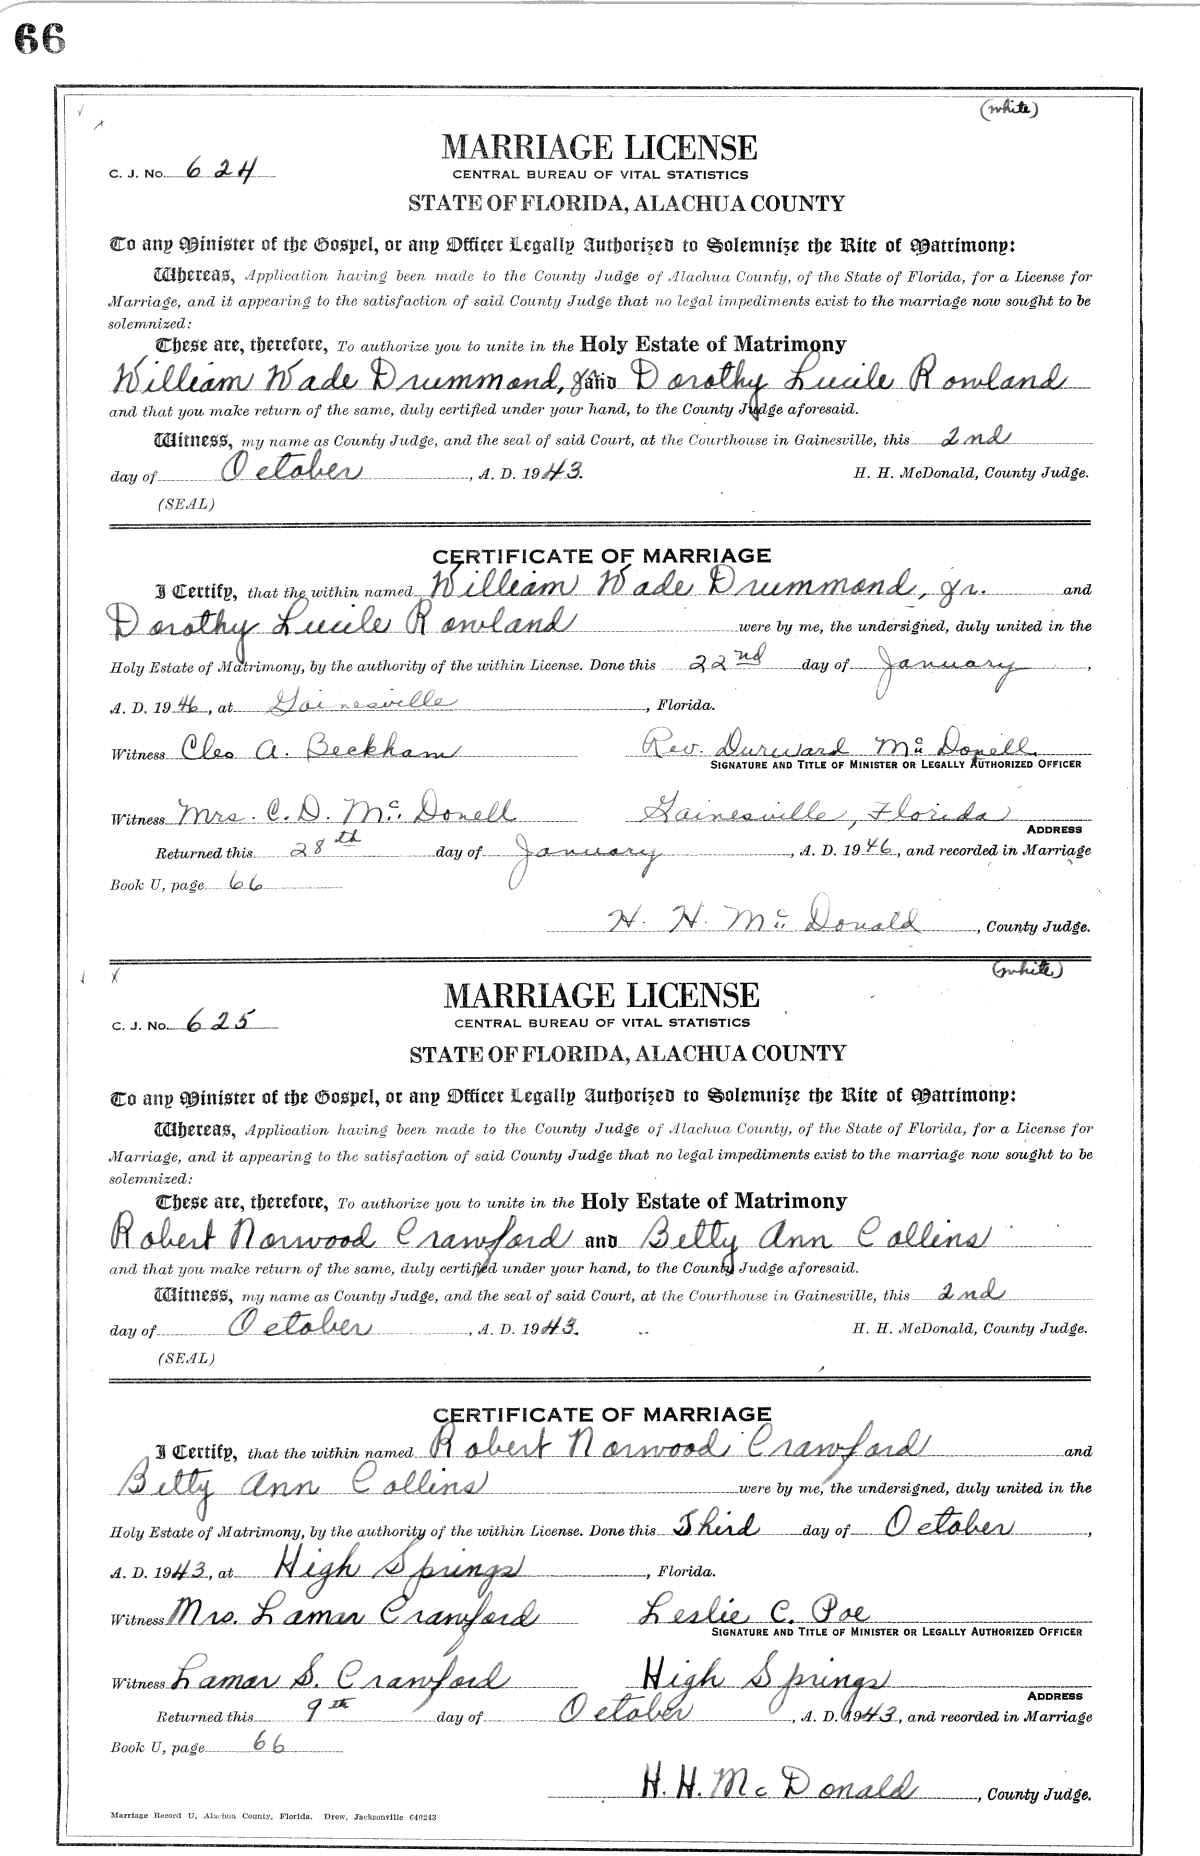 66
(white)
MARRIAGE LICENSE
C. J. No. 624
CENTRAL BUREAU OF VITAL STATISTICS
STATE OF FLORIDA, ALACHUA COUNTY
To any Minister of the Gospel, or any Officer Legally Authorized to Solemnize the Rite of Matrimony:
Whereas, Application having been made to the County Judge of Alachua County, of the State of Florida, for a License for
Marriage, and it appearing to the satisfaction of said County Judge that no legal impediments exist to the marriage now sought to be
solemnized:
These are, therefore, To authorize you to unite in the Holy Estate of Matrimony
William Wade Drummond, Jr. and Dorothy Lucile Rowland
and that you make return of the same, duly certified under your hand, to the County Judge aforesaid.
Witness, my name as County Judge, and the seal of said Court, at the Courthouse in Gainesville, this 2nd
day of October, A. D. 1943. H. H. McDonald, County Judge.
(SEAL)
CERTIFICATE OF MARRIAGE
I Certify, that the within named William Wade Drummond, Jr. and
Dorothy Lucile Rowland were by me, the undersigned, duly united in the
Holy Estate of Matrimony, by the authority of the within License. Done this 22nd day of January,
A. D. 1946, at Gainesville, Florida.
Witness Cleo A. Beckham Rev. Durward McDonell
SIGNATURE AND TITLE OF MINISTER OR LEGALLY AUTHORIZED OFFICER
Witness Mrs. C. D. McDonell Gainesville, Florida
ADDRESS
Returned this 28th day of January, A. D. 1946, and recorded in Marriage
Book U, page 66
H. H. McDonald, County Judge.
(white)
MARRIAGE LICENSE
C. J. No. 625
CENTRAL BUREAU OF VITAL STATISTICS
STATE OF FLORIDA, ALACHUA COUNTY
To any Minister of the Gospel, or any Officer Legally Authorized to Solemnize the Rite of Matrimony:
Whereas, Application having been made to the County Judge of Alachua County, of the State of Florida, for a License for
Marriage, and it appearing to the satisfaction of said County Judge that no legal impediments exist to the marriage now sought to be
solemnized:
These are, therefore, To authorize you to unite in the Holy Estate of Matrimony
Robert Norwood Crawford and Betty Ann Collins
and that you make return of the same, duly certified under your hand, to the County Judge aforesaid.
Witness, my name as County Judge, and the seal of said Court, at the Courthouse in Gainesville, this 2nd
day of October, A. D. 1943. H. H. McDonald, County Judge.
(SEAL)
CERTIFICATE OF MARRIAGE
I Certify, that the within named Robert Norwood Crawford and
Betty Ann Collins were by me, the undersigned, duly united in the
Holy Estate of Matrimony, by the authority of the within License. Done this Third day of October,
A. D. 1943, at High Springs, Florida.
Witness Mrs. Lamar Crawford Leslie C. Poe
SIGNATURE AND TITLE OF MINISTER OR LEGALLY AUTHORIZED OFFICER
Witness Lamar S. Crawford High Springs
ADDRESS
Returned this 9th day of October, A. D. 1943, and recorded in Marriage
Book U, page 66
H. H. McDonald, County Judge.
Marriage Record U, Alachua County, Florida. Drew, Jacksonville 640243